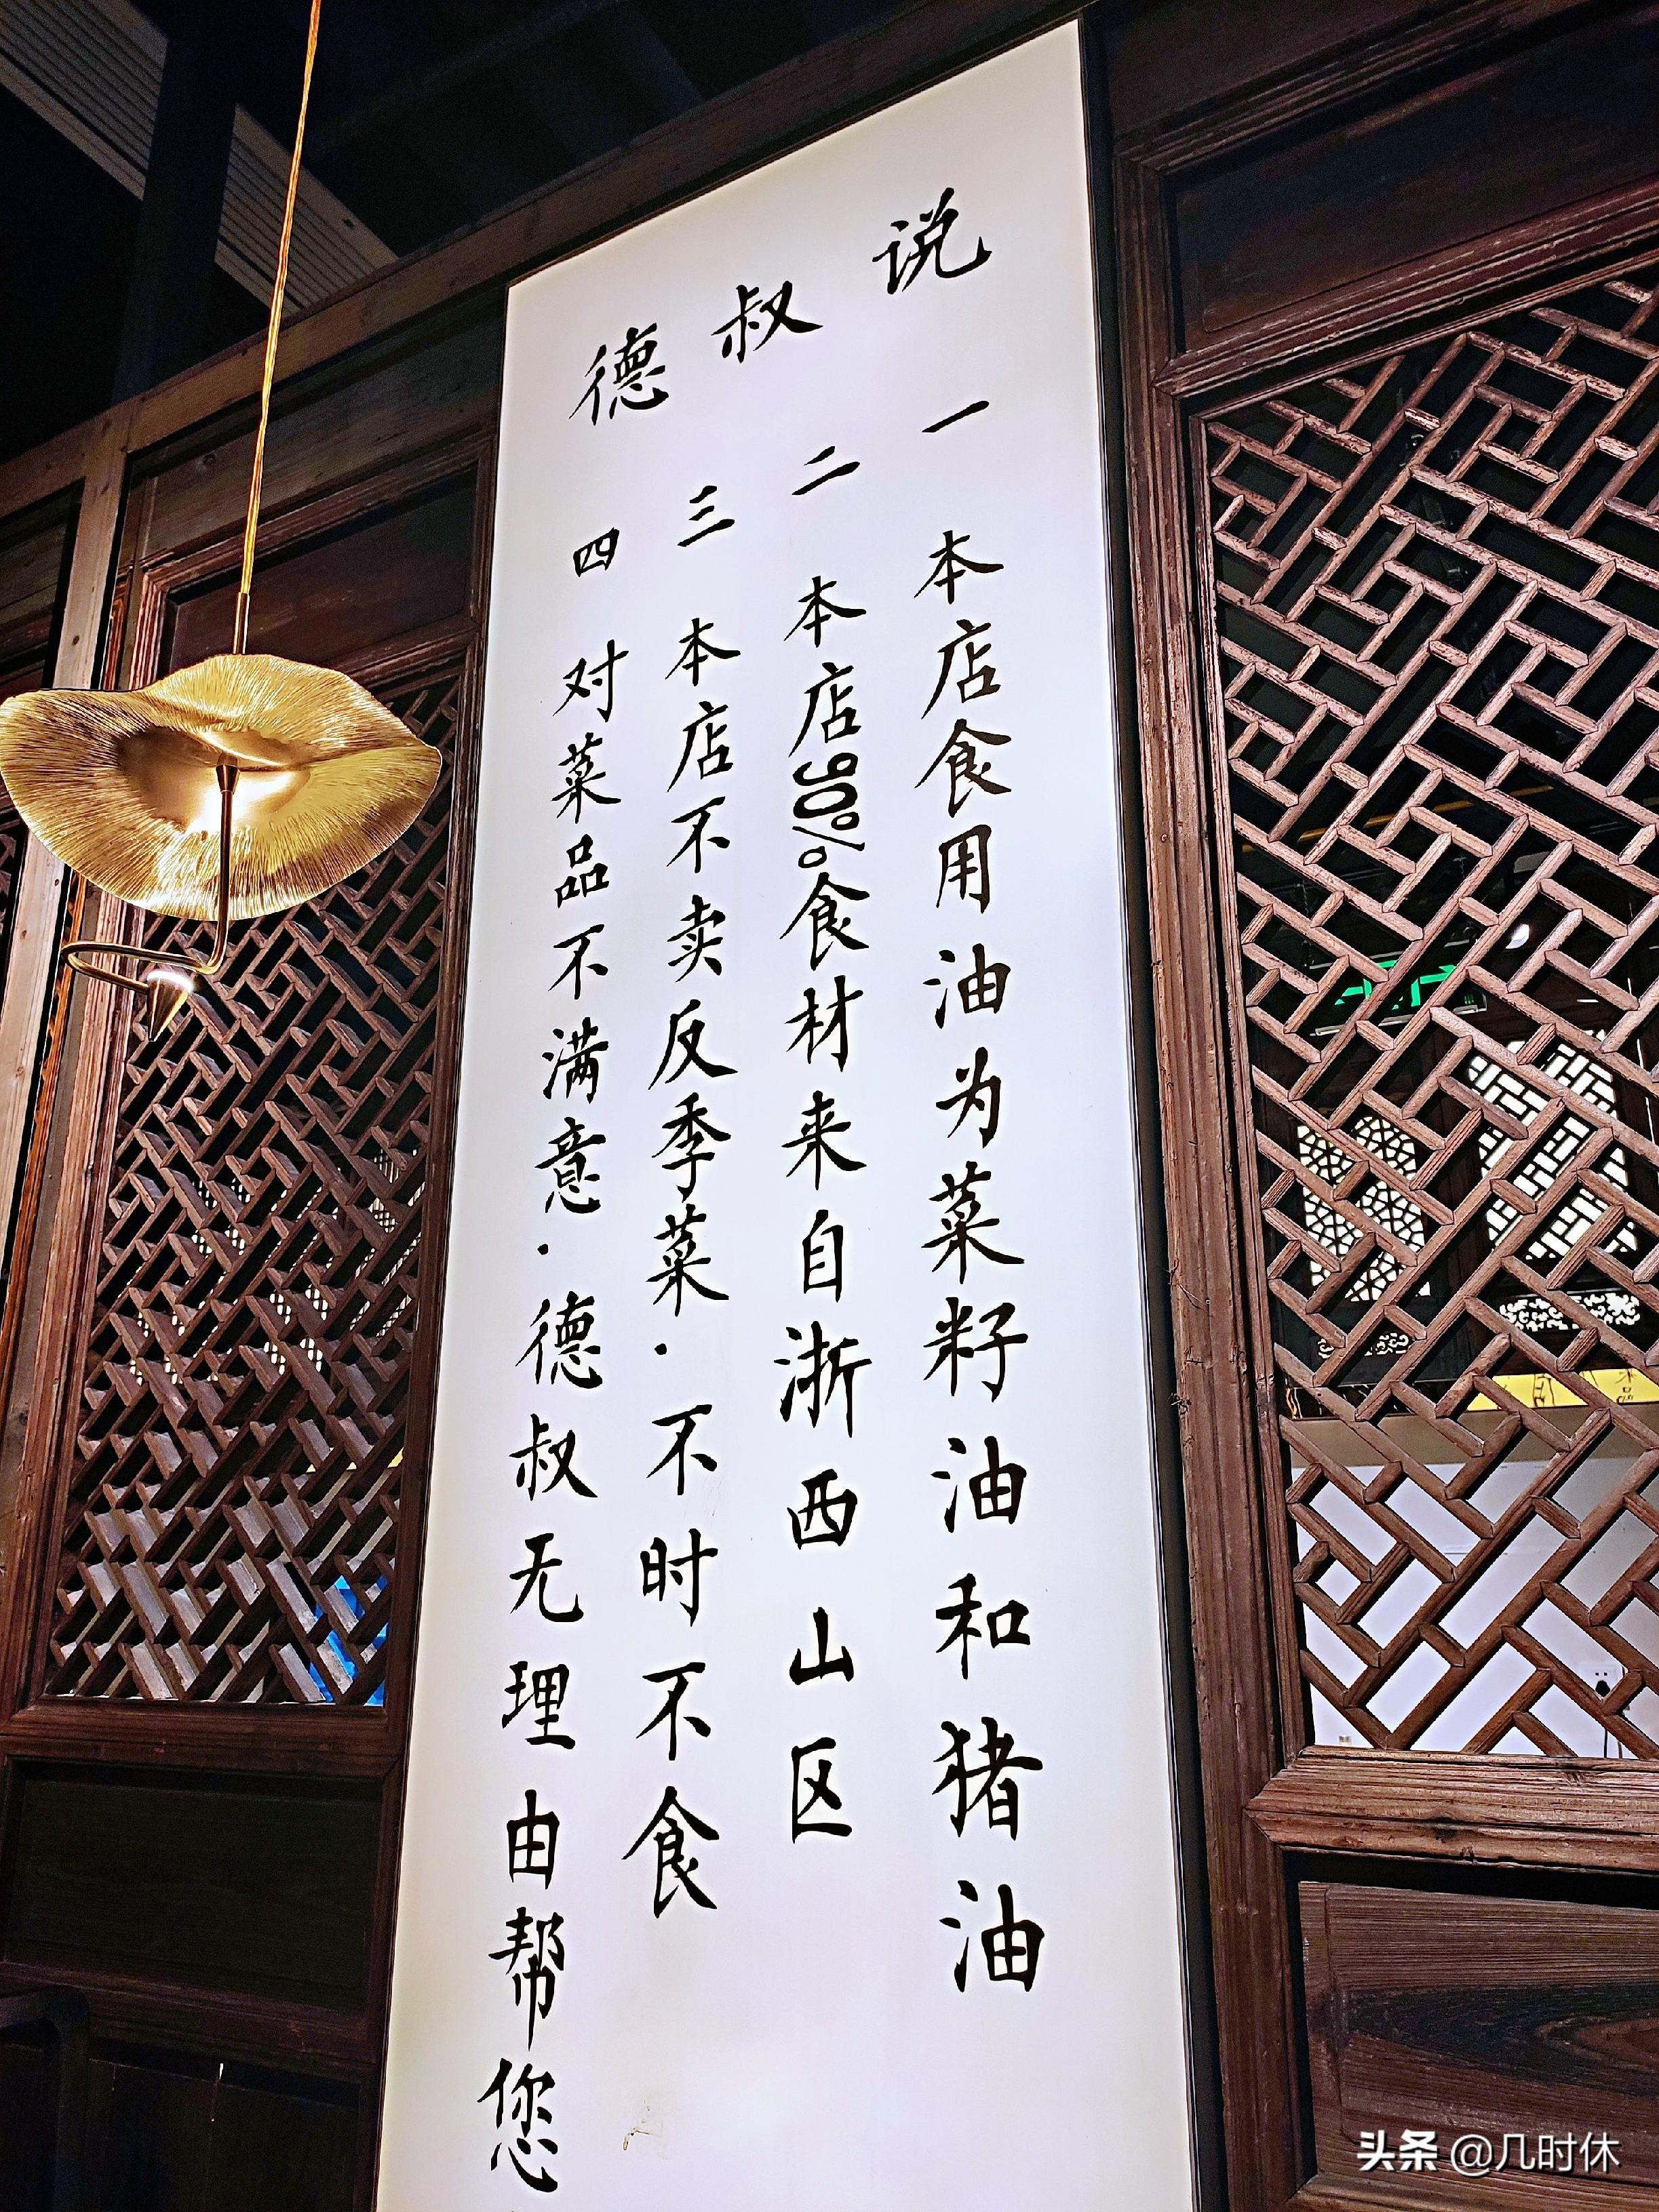 德叔说
一 本店食用油为菜籽油和猪油
二 本店90%食材来自浙西山区
三 本店不卖反季菜·不时不食
四 对菜品不满意·德叔无理由帮您
头条 @几时休